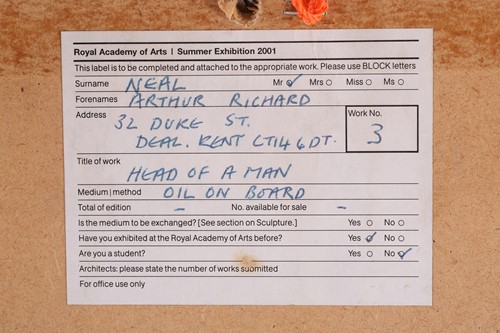 Royal Academy of Arts | Summer Exhibition 2001
This label is to be completed and attached to the appropriate work. Please use BLOCK letters
Surname NEAL Mr Mrs Miss Ms
Forenames ARTHUR RICHARD
Address 32 DUKE ST. Work No.
DEAL. KENT CT14 6DT. 3
Title of work
HEAD OF A MAN
Medium | method OIL ON BOARD
Total of edition – No. available for sale –
Is the medium to be exchanged? [See section on Sculpture.] Yes No
Have you exhibited at the Royal Academy of Arts before? Yes No
Are you a student? Yes No
Architects: please state the number of works submitted
For office use only